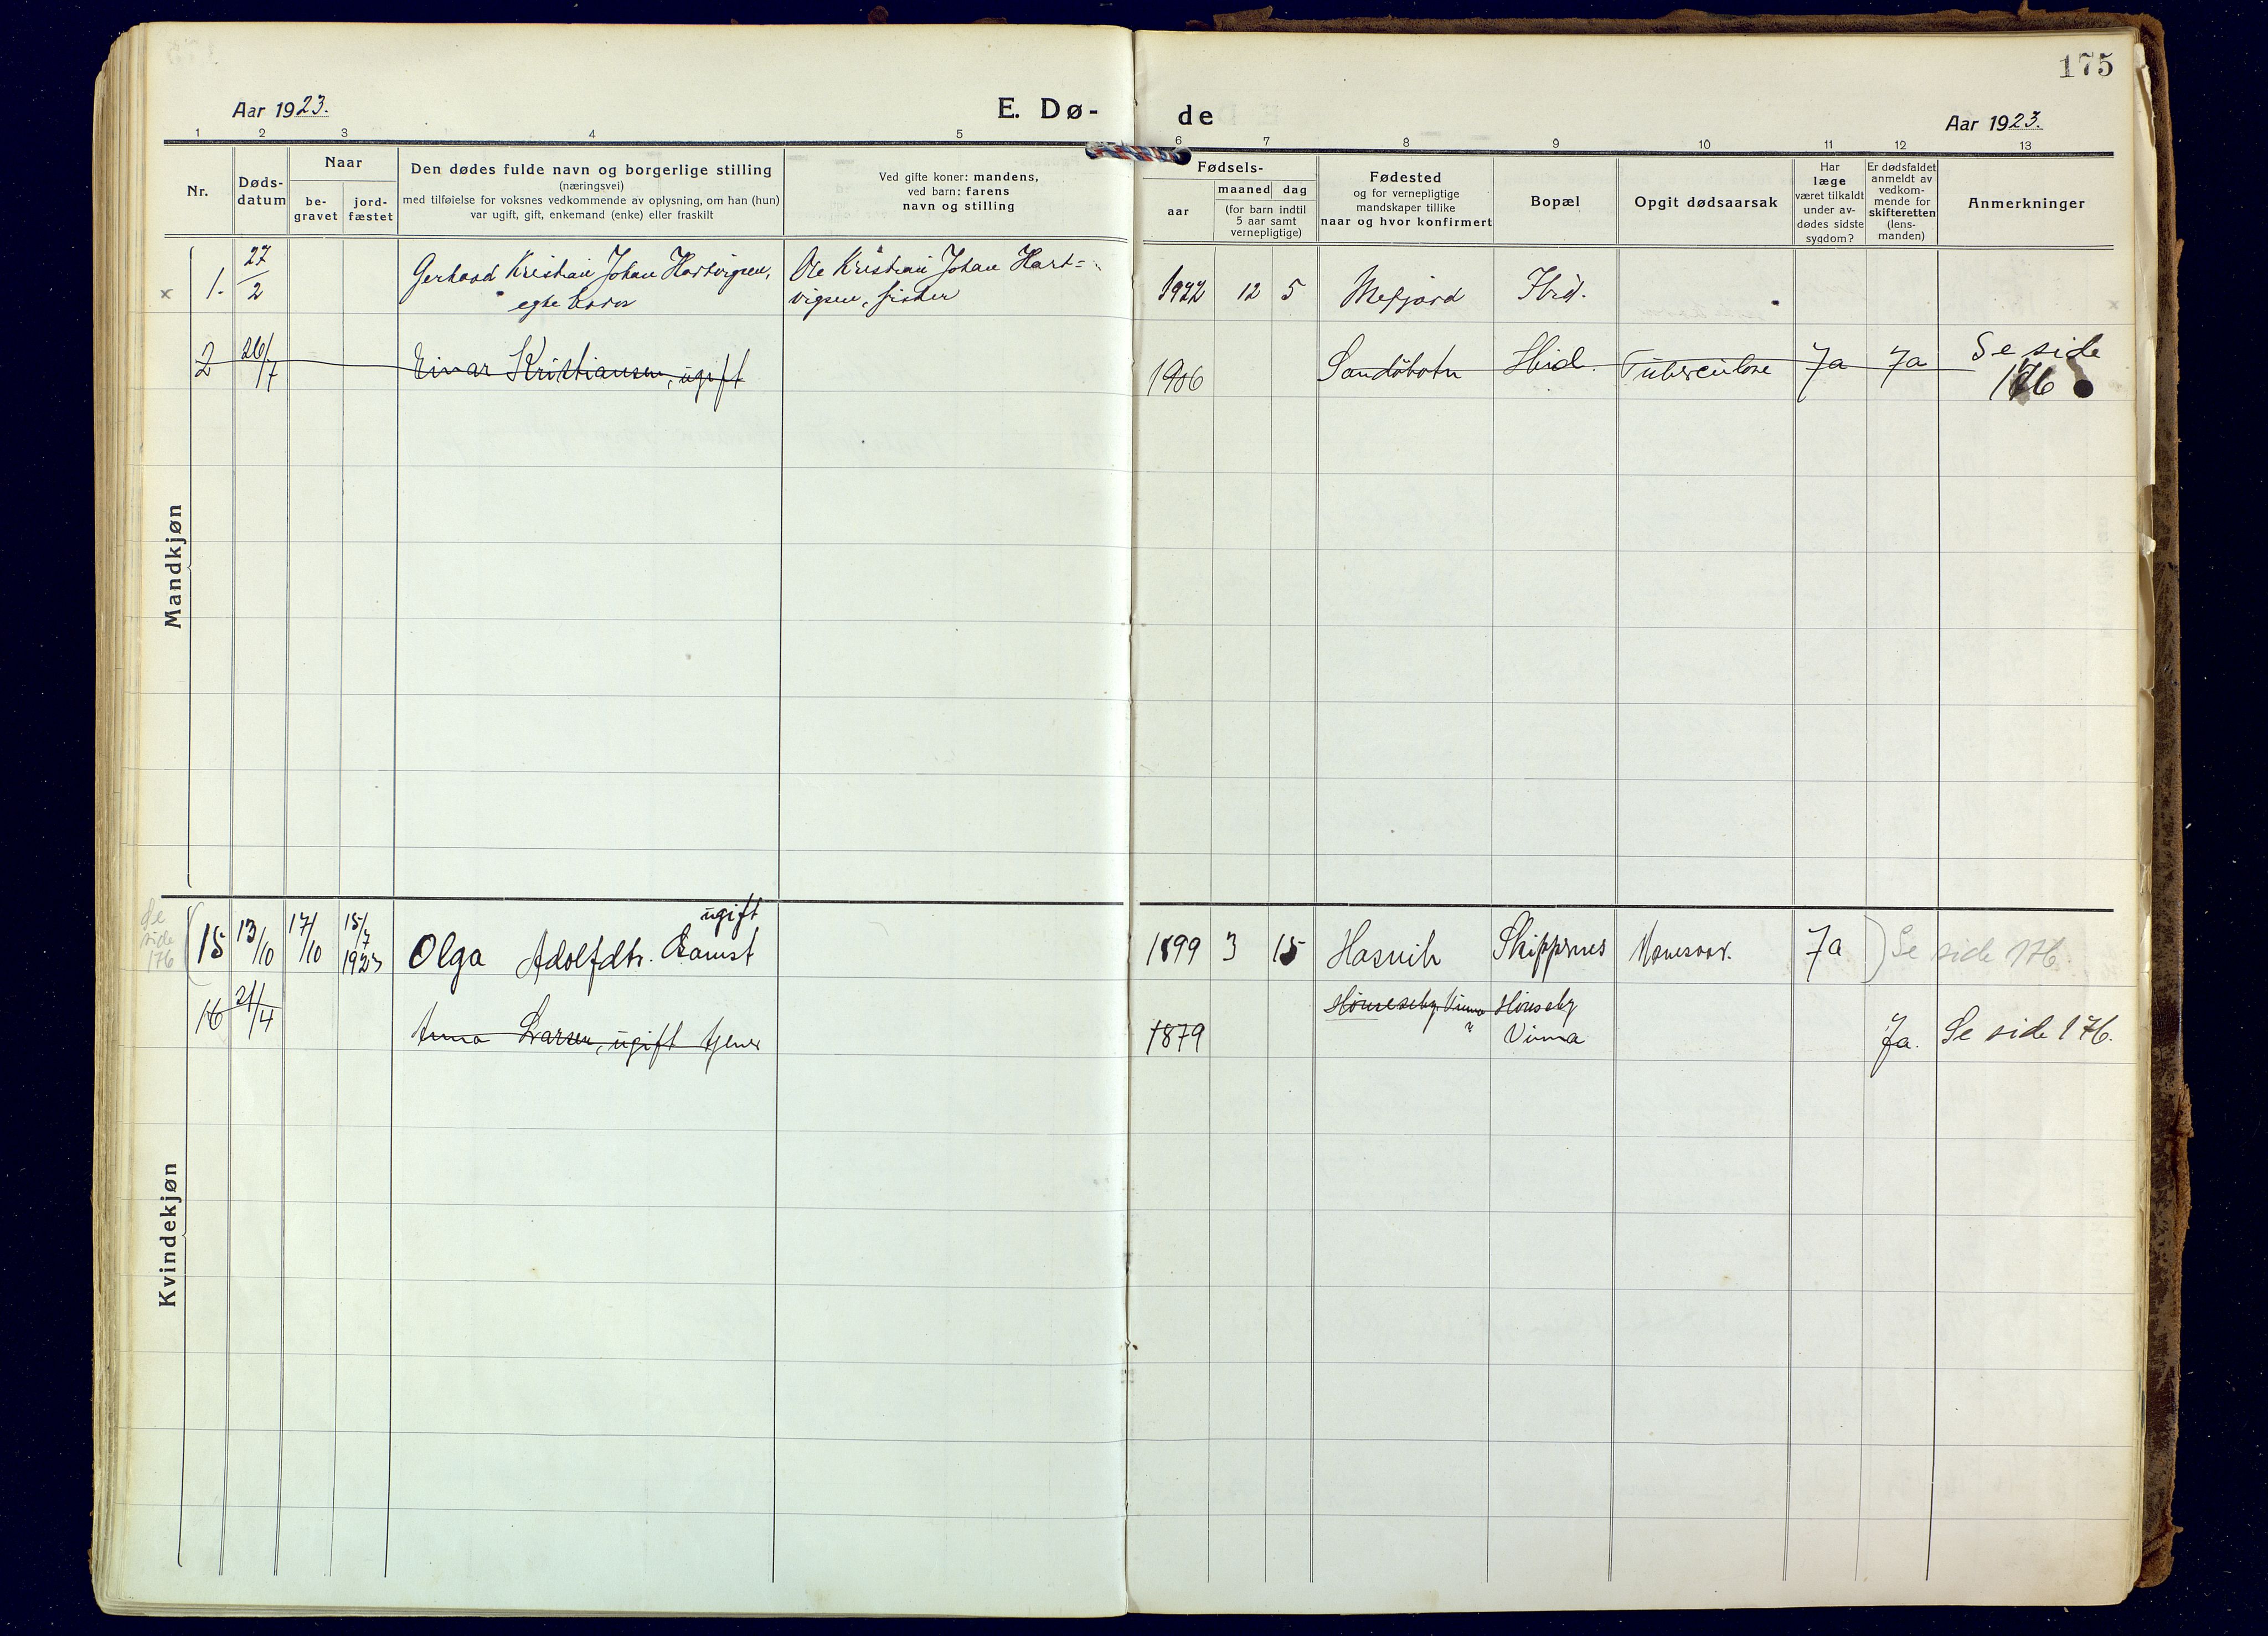 175
Aar 1923.
E. Dø-
de
Aar 1923.
1 2 3 4 5 6 7 8 9 10 11 12 13
Nr.
Døds-
datum
Naar
be-
gravet
jord-
fæstet
Den dødes fulde navn og borgerlige stilling
(næringsvei)
med tilføielse for voksnes vedkommende av oplysning, om han (hun)
var ugift, gift, enkemand (enke) eller fraskilt
Ved gifte koner: mandens,
ved barn: farens
navn og stilling
Fødsels-
aar
maaned dag
(for barn indtil
5 aar samt
vernepligtige)
Fødested
og for vernepligtige
mandskaper tillike
naar og hvor konfirmert
Bopæl
Opgit dødsaarsak
Har
læge
været tilkaldt
under av-
dødes sidste
sygdom?
Er dødsfaldet
anmeldt av
vedkom-
mende for
skifteretten
(lens-
manden)
Anmerkninger
Mandkjøn
x 1. 27/2 Gerhard Kristian Johan Hartvigsen, Ole Kristian Johan Hart= 1922 12 5 Mefjord Ibid.
egte barn vigsen, fisker
2 26/7 Einar Kristiansen, ugift 1906 Sandöbotn Ibid. Tuberculose Ja Ja Se side
176
Kvindekjøn
Se
side
176
ugift
15 13/10 17/10 15/7 1923 Olga Adolfdtr. 1899 3 15 Hasvik Skippernes Ja Se side 176.
16 21/4 Anna Larsen, ugift 1879 Hönseby Ja. Se side 176.